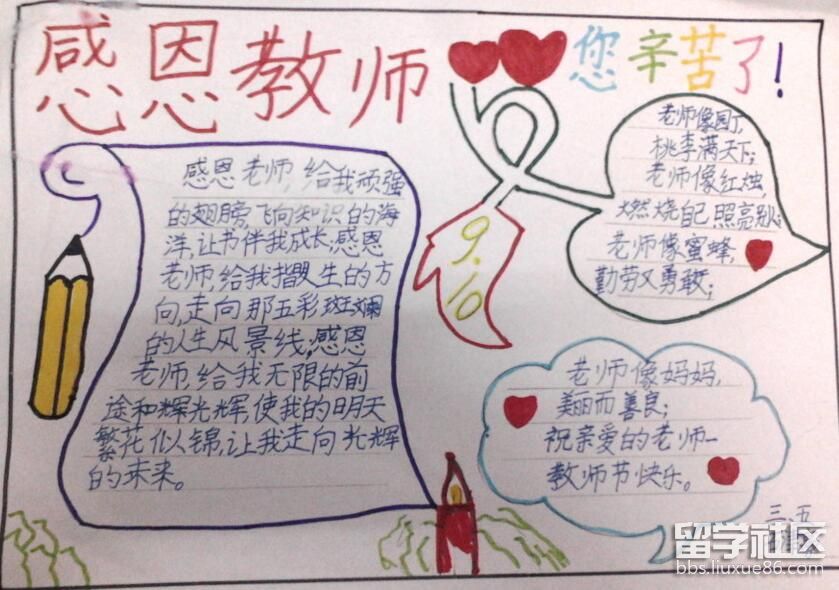 感恩教师
您辛苦了!
感恩老师,给我顽强
的翅膀,飞向知识的海
洋,让书伴我成长;感恩
老师,给我指明人生的方
向,走向那五彩斑斓
的人生风景线;感恩
老师,给我无限的前
途和辉光辉,使我的明天
繁花似锦,让我走向光辉
的未来。
9.10
老师像园丁,
桃李满天下;
老师像红烛,
燃烧自己照亮别人;
老师像蜜蜂,
勤劳又勇敢;
老师像妈妈,
美丽而善良;
祝亲爱的老师—
教师节快乐。
三、五
留学社区
bbs.liuxue86.com